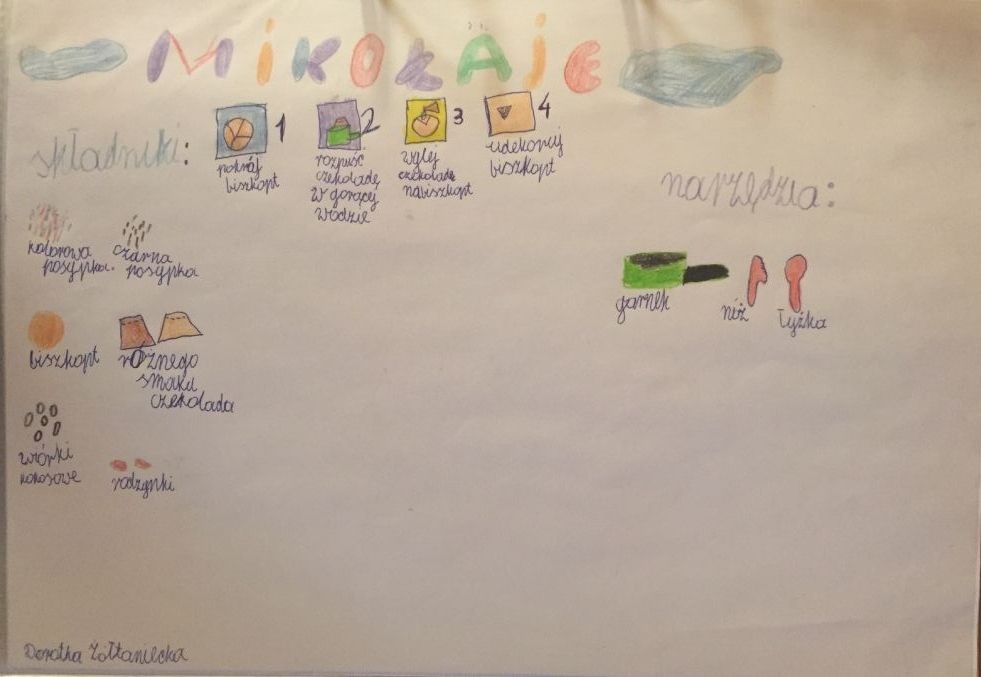 MIKOŁAJE
składniki:
1
pokrój
biszkopt
2
rozpuść
czekoladę
w gorącej
wodzie
3
wylej
czekoladę
na biszkopt
4
udekoruj
biszkopt
narzędzia:
kolorowa
posypka.
czarna
posypka
biszkopt
rożnego
smaku
czekolada
wiórki
kokosowe
rodzynki
garnek
nóż
łyżka
Dorotka Żółtaniecka